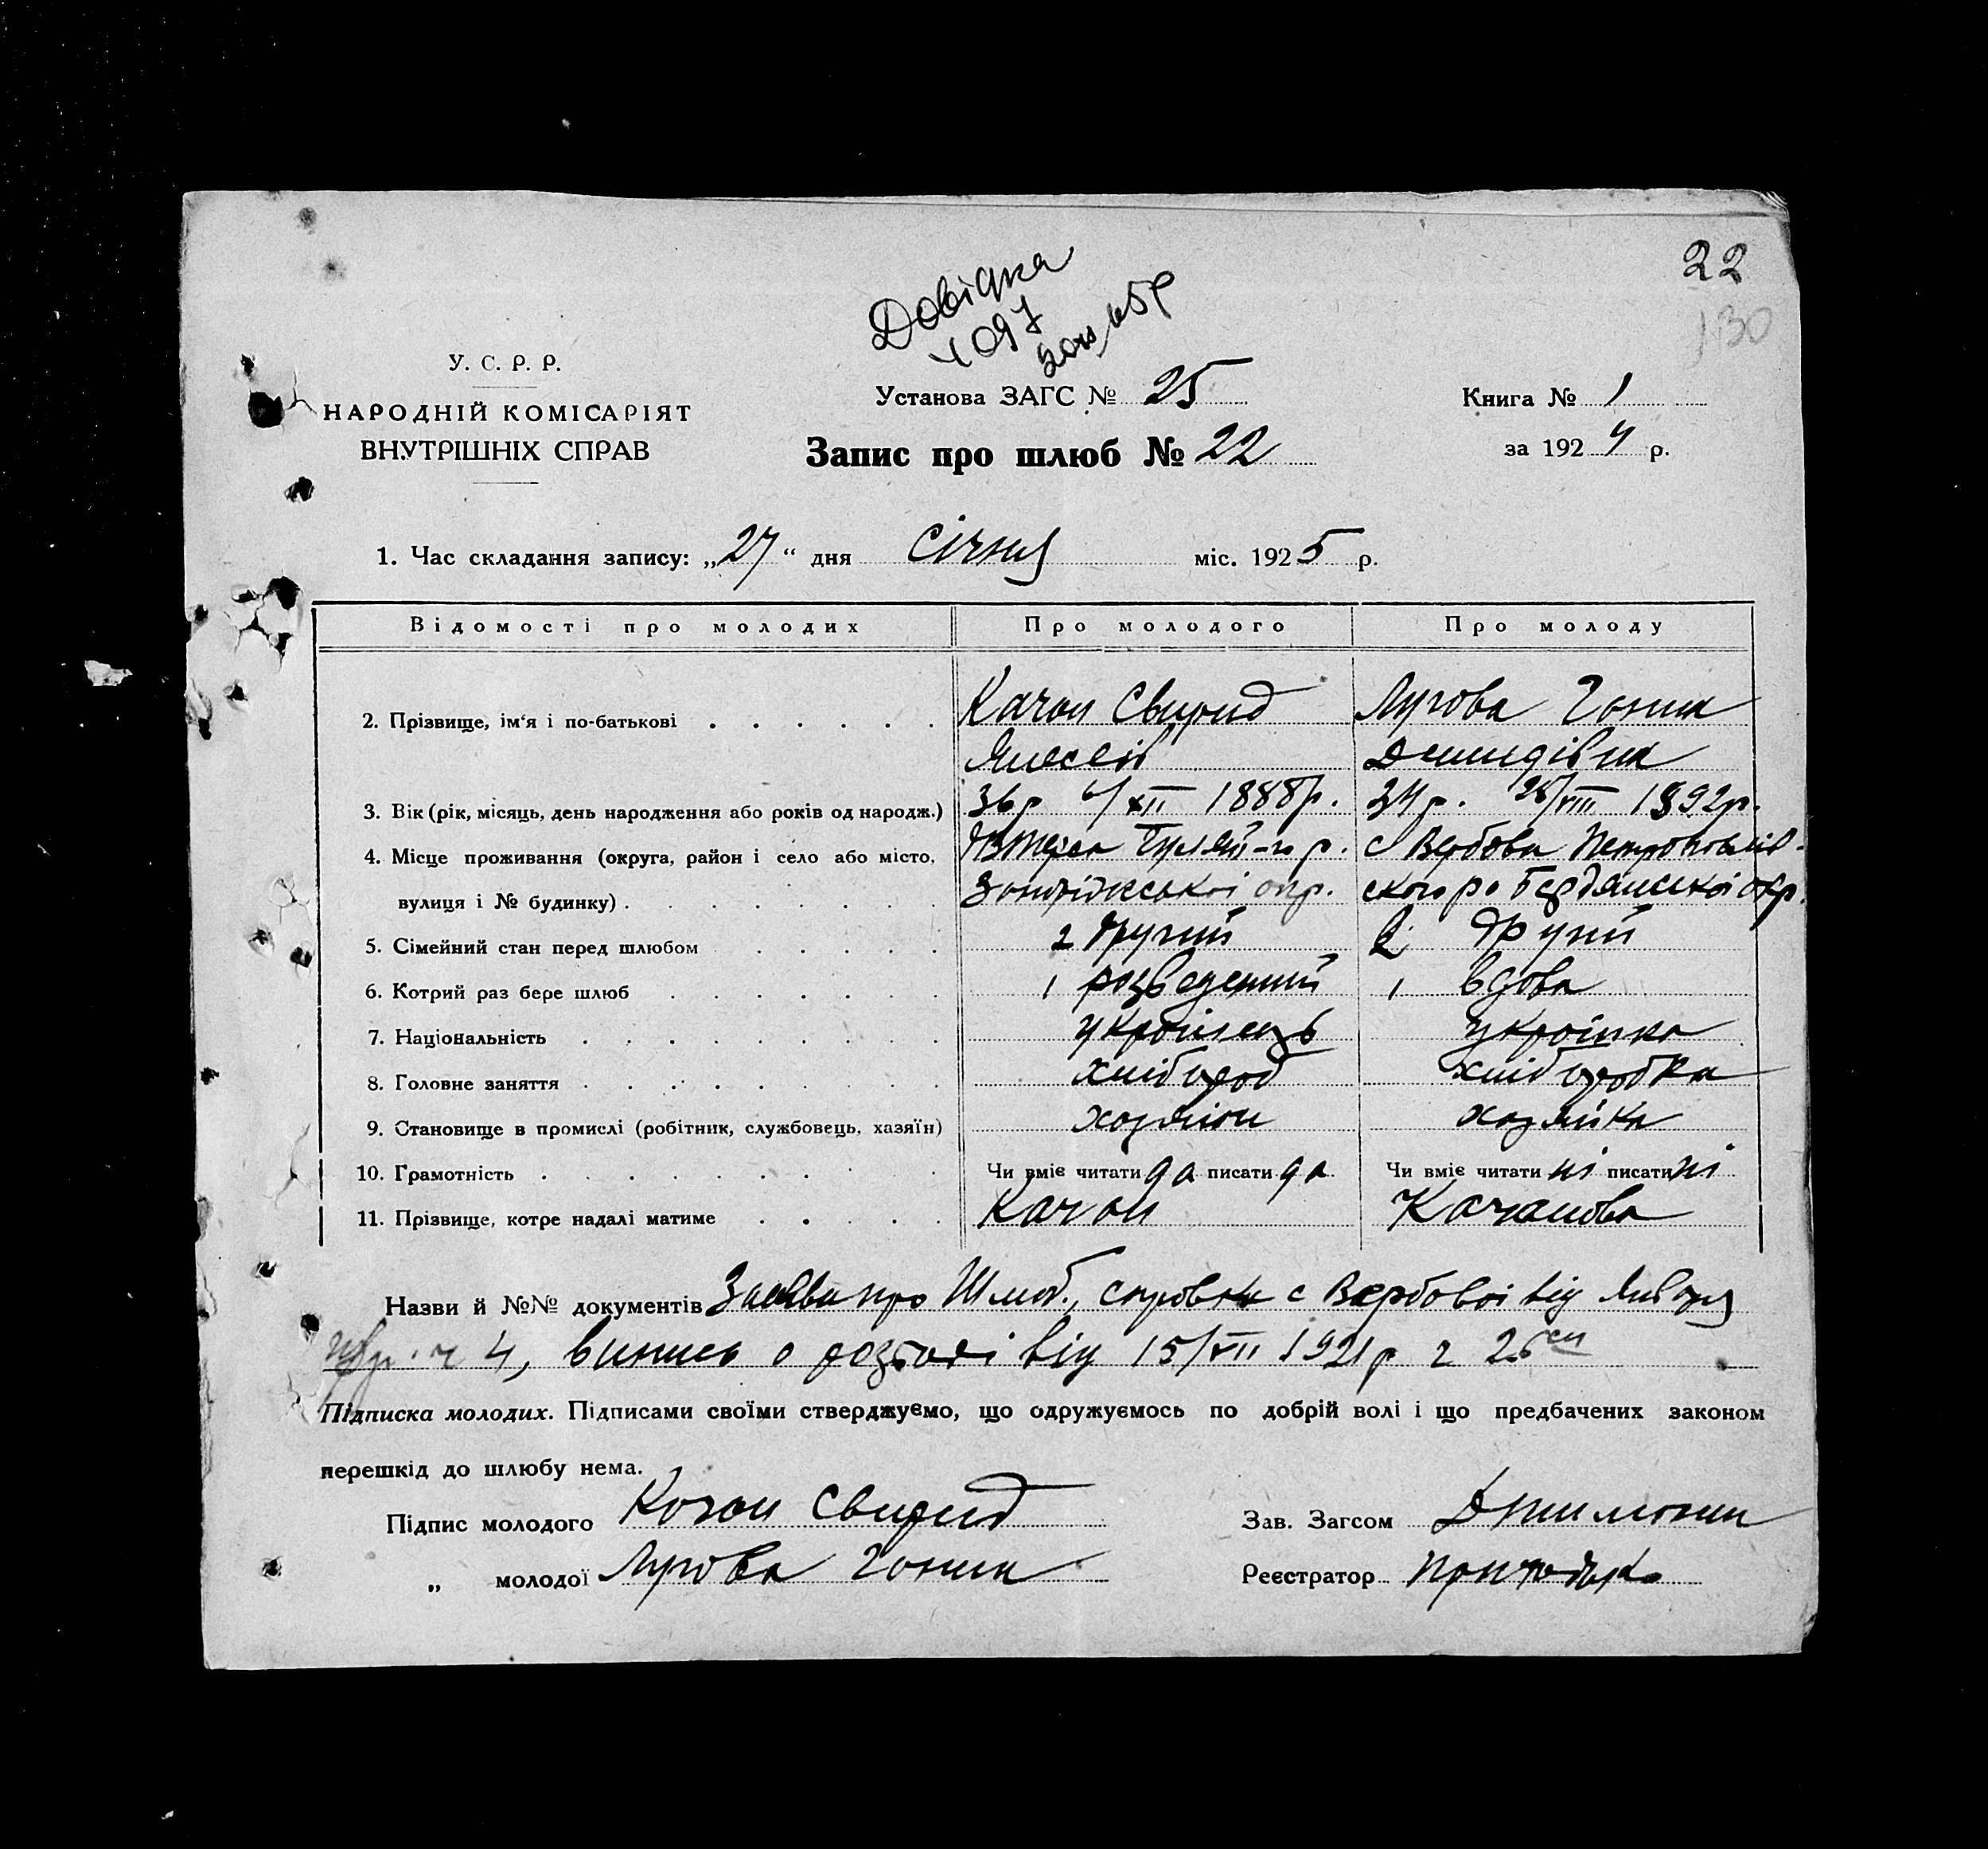 22
130
Довідка
1097
У. С. Р. Р.
НАРОДНІЙ КОМІСАРІЯТ
ВНУТРІШНІХ СПРАВ
Установа ЗАГС № 25
Запис про шлюб № 22
Книга № 1
за 1924 р.
1. Час складання запису: „27“ дня січня міс. 1925 р.
Відомості про молодих Про молодого Про молоду
2. Прізвище, ім'я і по-батькові Качан Свирид Лугова
Демидівна
3. Вік (рік, місяць, день народження або років од народж.) 36 р 6/XII 1888 р. 34 р. 28/VIII 1892 р.
4. Місце проживання (округа, район і село або місто, Гуляй-го р. с Вербова
вулиця і № будинку) окр. ского р. Бердянської окр.
5. Сімейний стан перед шлюбом 2 другий 2 другий
6. Котрий раз бере шлюб 1 розведений 1 вдова
7. Національність українець українка
8. Головне заняття хлібороб хліборобка
9. Становище в промислі (робітник, службовець, хазяїн) хозяїн хозяйка
10. Грамотність Чи вміє читати да писати да Чи вміє читати ні писати ні
11. Прізвище, котре надалі матиме Качан Качанова
Назви й №№ документів Заява про Шлюб, справка с Вербової від
ч 4, випись о розводі від 15/XII 1921 р ч 26
Підписка молодих. Підписами своїми стверджуємо, що одружуємось по добрій волі і що предбачених законом
перешкід до шлюбу нема.
Підпис молодого Качан Свирид Зав. Загсом
„ молодої Лугова Реєстратор